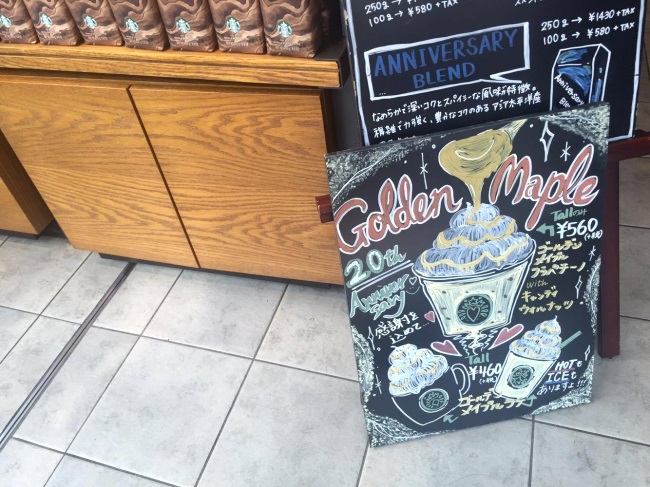 250g → ¥1430 + TAX
100g → ¥580 + TAX
100g → ¥580 + TAX
ANNIVERSARY
BLEND
なめらかで深いコクとスパイシーな風味が特徴。
複雑で力強く、豊かなコクのある アジア太平洋産
Anniversary
Golden Maple
Tallのみ
¥560
(+税)
20th
Anniversary
ゴールデン
メイプル
フラペチーノ
with
キャンディ
ウォルナッツ
感謝を
込めて…
Tall
¥460
(+税)
HOTも
ICEも
ありますよ!!!
ゴールデン
メイプル